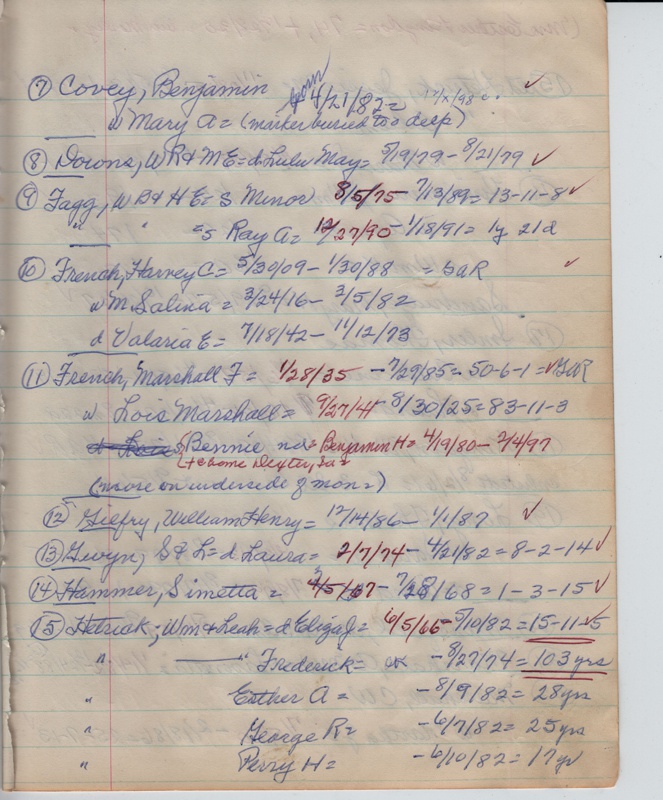 ⑦ Covey, Benjamin born 4/21/82 =
w Mary A = (marker buried too deep)
⑧ Downs, W R & M E = d Lulu May = 5/19/79 - 8/21/79 ✓
⑨ Fagg, W B & H E = S Minor 8/5/75 - 7/13/89 = 13-11-8 ✓
" " = s Ray A = 12/27/90 - 1/18/91 = 1y 21d
⑩ French, Harvey C = 5/30/09 - 1/30/88 = GAR ✓
w M. Salina = 3/24/16 - 3/5/82
d Valaria E = 7/18/42 - 11/12/73
⑪ French, Marshall F = 1/28/35 - 7/29/85 = 50-6-1 = ✓ GAR
w Lois Marshall = 9/27/41 - 8/30/25 = 83-11-3
d Lois S Bennie nd = Benjamin H = 4/19/80 - 2/4/97
home Dexter, Ia =
(more on underside of mon =)
⑫ Gilfry, William Henry = 12/14/86 - 1/1/87 ✓
⑬ Gwyn, S & L = d Laura = 2/7/74 - 4/21/82 = 8-2-14 ✓
⑭ Hammer, Simetta = /5/67 - 7/ /68 = 1-3-15 ✓
⑮ Hetriak; Wm & Leah = d Eliza J = 6/5/66 - 5/10/82 = 15-11-5
" " Frederick = ok - 8/27/74 = 103 yrs
" Esther A = - 8/9/82 = 28 yrs
" George R = - 6/7/82 = 25 yrs
" Perry H = - 6/10/82 = 17 yr